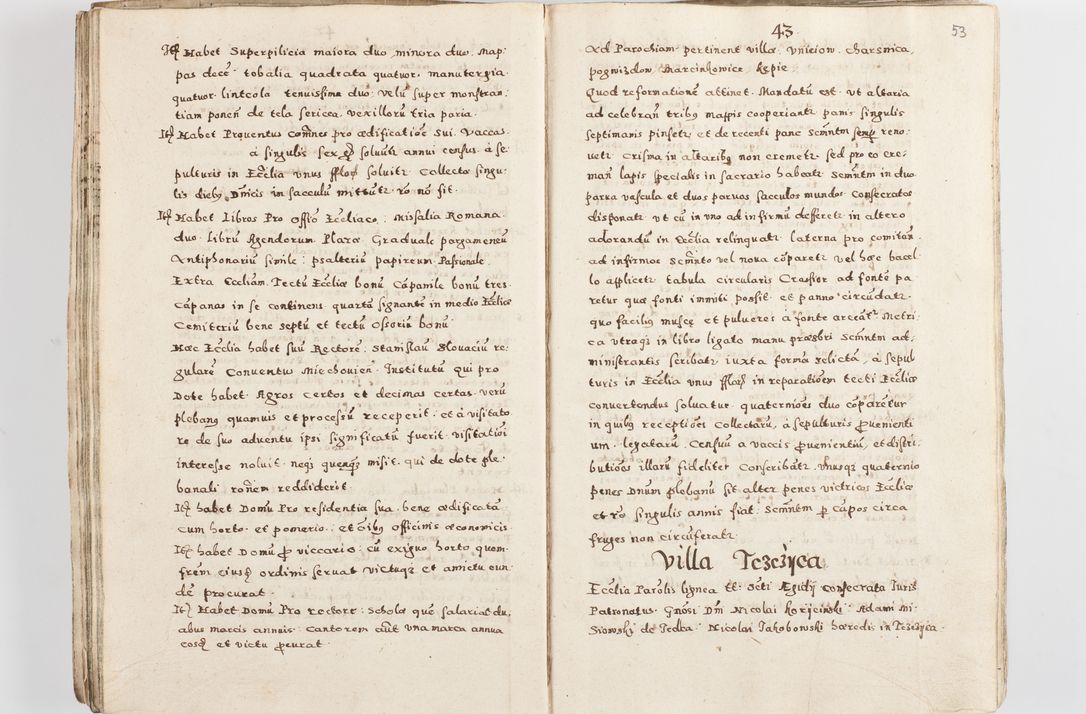 Itē Habet Superpilicia maiora duo, minora duo. Map:
pas decē. tobalia quadrata quatuor. manutergia.
quatuor. linteola tenuissima duo: velū super monstran:
tiam ponen̄ de tela sericea. vexillorū tria paria.
Itē Habet Prouentus Com̄nes pro ædificatiōe Sui. Vaccas.
a singulis sex soluūt annui census. a se:
pulturis in Ecclia vnus flo: soluit: Collecta singu:
lis diebꝫ Dnīcis in sacculū mittūtꝛ ro nō fit.
Itē Habet Libros Pro offiō Eccliaco: Missalia Romana
duo. Librū Agendorum. Plaræ Graduale pargameneū
Antiphonariū simile: psalteriū papireum. Passionale.
Extra Eccliam. Tectū Eccliæ bonū. Cāpanile bonū tres.
Cāpanas in se continens quarta signante in medio Eccliæ
Cemiteriū bene septū et tectū Ossoriū bonū
Hæc Ecclia habet suū Rectorē: Stanislaū Slouaciū re:
gularē Conuentus Miechouien̄. Institutū qui pro
Dote habet. Agros certos et decimas certas. verū
plebanꝫ quamuis et processū receperit: et a visitato
re de suo aduentu ipsi significatū fuerit. visitatiōi
interesse noluit. neqꝫ quenqꝫ misit. qui de dote ple:
banali rōnem reddiderit.
Itē habet Domū Pro residentia sua. bene ædificatā
cum horto. et pomerio: et oībꝫ officinis œconomicis.
Itē habet Domū ꝓ viccario: cū exiguo horto quem.
frēm eiusꝫ ordinis seruat victuqꝫ et amictu eun
dē procurat.
Itē Habet Domū Pro rectore: Scholæ quē salariat du,
abus marcis annuis. Cantorem aūt vna marca annua
eosꝫ et victu ꝓcurat.
43
53
Ad Parochiam pertinent villæ. Vniciow. Charsnica,
pogwizdow. Marcinkowice. Kępie
Quod reformationē attinet. Mandatū est. vt altaria
ad celebran̄ tribꝫ mappis cooperiantꝛ. panis singulis
septimanis pinsetꝛ. et de recenti pane Scmn̄tm semꝑ reno:
vetꝛ. Crisma in altaribꝫ non cremetꝛ. sed pro eo cre:
man̄. lapis specialis in sacrario habeatꝛ. Scmn̄tm in duo
parua vascula et duos paruos sacculos mundos Consecratos
disponatꝛ. vt cū in vno ad infirmū defferetꝛ in altero
adorandū in Ecclia relinquatꝛ. laterna pro comitan̄.
ad infirmos Scmn̄to vel noua cōparetꝛ vel hæc bacel
lo applicetꝛ. tabula circularis Crassior ad fontē pa
retur quæ fonti immiti possit. et panno circūdatꝛ.
quo facilius muscę et pulueres a fonte arceātꝛ. Metri:
ca vtraqꝫ in libro ligato manu præsbri Scmn̄tm ad:
ministrantis scribatꝛ iuxta formā relictā. a sepul
turis in Ecclia vnus flo: in reparatiōem tecti Eccliæ
conuertendus soluatur. quaterniōes duo cōparētur
in quibꝫ receptiōes Collectarū, a sepulturis prouenienti
um. legatarū. Censuū a vaccis prouenientiū, et distri:
butiōes illarū fideliter Conscribātꝛ. vnusqꝫ quaternio
penes Dnum plebanū sit alter penes victricos Eccliæ
et ro singulis annis fiat. Scmn̄tm ꝑ cāpos circa
fruges non circūferatꝛ.
Villa Tczczijca.
Ecclia Parōlis lignea tt: Scti Ægidij consecrata Iuris
Patronatus. Gnōsi Dni Nicolai Korijcinski. Adami Mi
Siowski de Tedlca. Nicolai Jakobowski hæredis in Tczczijca.